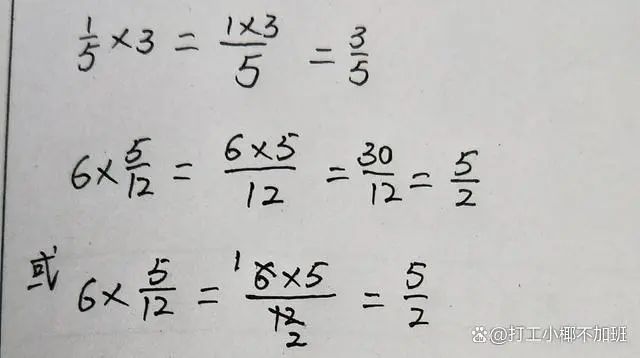 1/5 × 3 = 1×3/5 = 3/5
6 × 5/12 = 6×5/12 = 30/12 = 5/2
或 6 × 5/12 = 1 6×5/12 2 = 5/2
@打工小椰不加班